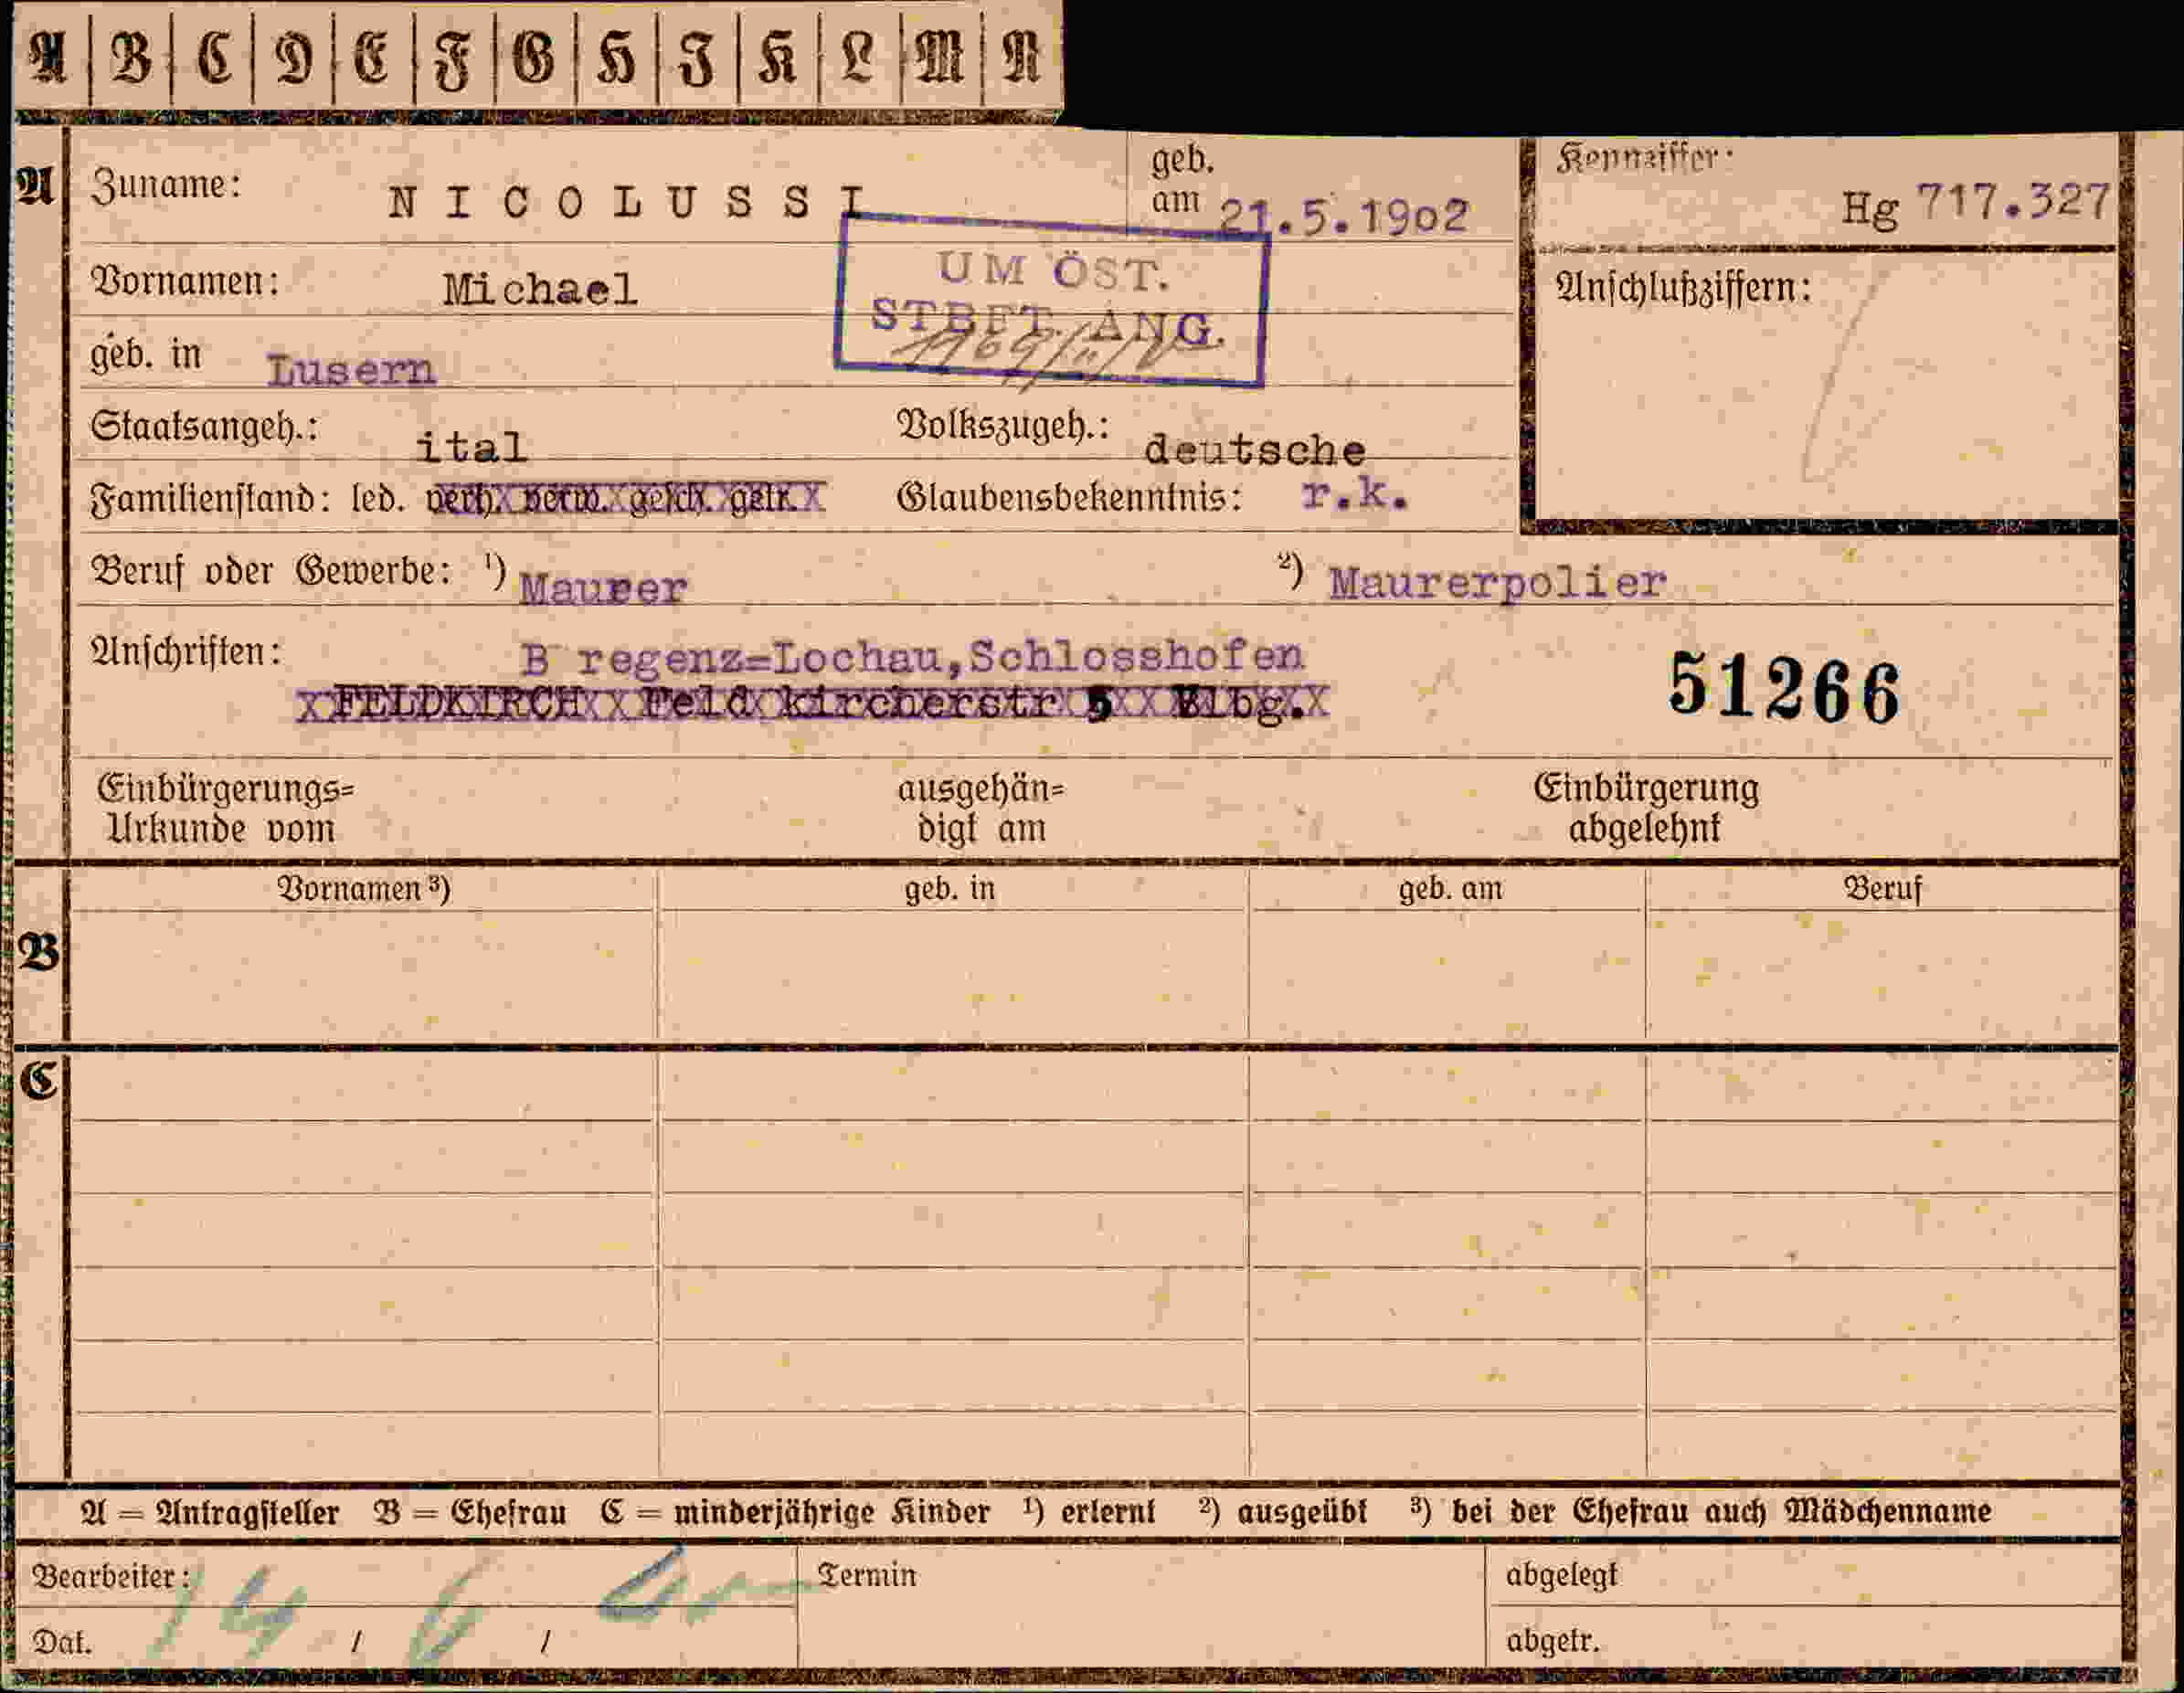 A B C D E F G H I K L M N
A
Zuname: NICOLUSSI
geb. am 21.5.1902
Kennziffer: Hg 717.327
Vornamen: Michael
UM ÖST.
STBFT. ANG.
Anschlußziffern:
geb. in Lusern
Staatsangeh.: ital
Volkszugeh.: deutsche
Familienstand: led. verh. verw. gesch. getr.
Glaubensbekenntnis: r.k.
Beruf oder Gewerbe: ¹) Maurer ²) Maurerpolier
Anschriften: B regenz=Lochau,Schlosshofen
FELDKIRCH Feldkircherstr 5 Vlbg.
51266
Einbürgerungs=
Urkunde vom
ausgehän=
digt am
Einbürgerung
abgelehnt
B
Vornamen ³) geb. in geb. am Beruf
C
A = Antragsteller B = Ehefrau C = minderjährige Kinder ¹) erlernt ²) ausgeübt ³) bei der Ehefrau auch Mädchenname
Bearbeiter:
Termin
abgelegt
Dat. / /
abgetr.